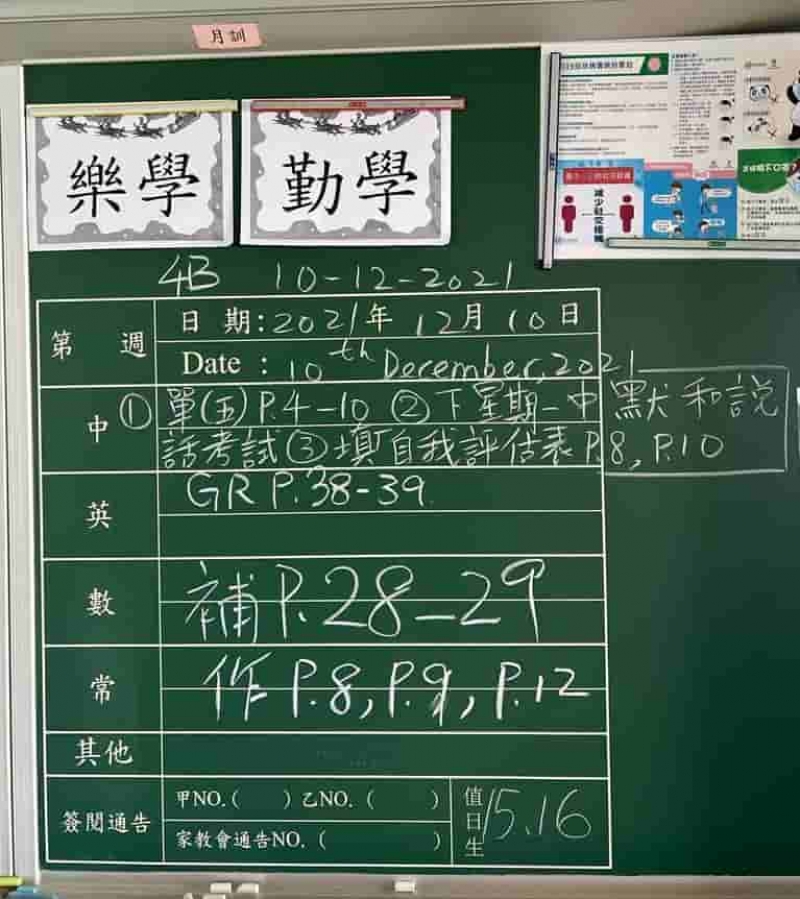 月訓
樂學
勤學
減少社交接觸
4B 10-12-2021
第 週
日 期:2021年 12月 10日
Date : 10th December, 2021
中 ① 單(五) P.4-10 ② 下星期一中默和説
話考試 ③ 填自我評估表 P.8, P.10
英 GR P.38-39
數 補 P.28-29
常 作 P.8, P.9, P.12
其他
簽閱通告 甲NO.( ) 乙NO. ( )
家教會通告NO. ( )
值日生 15.16